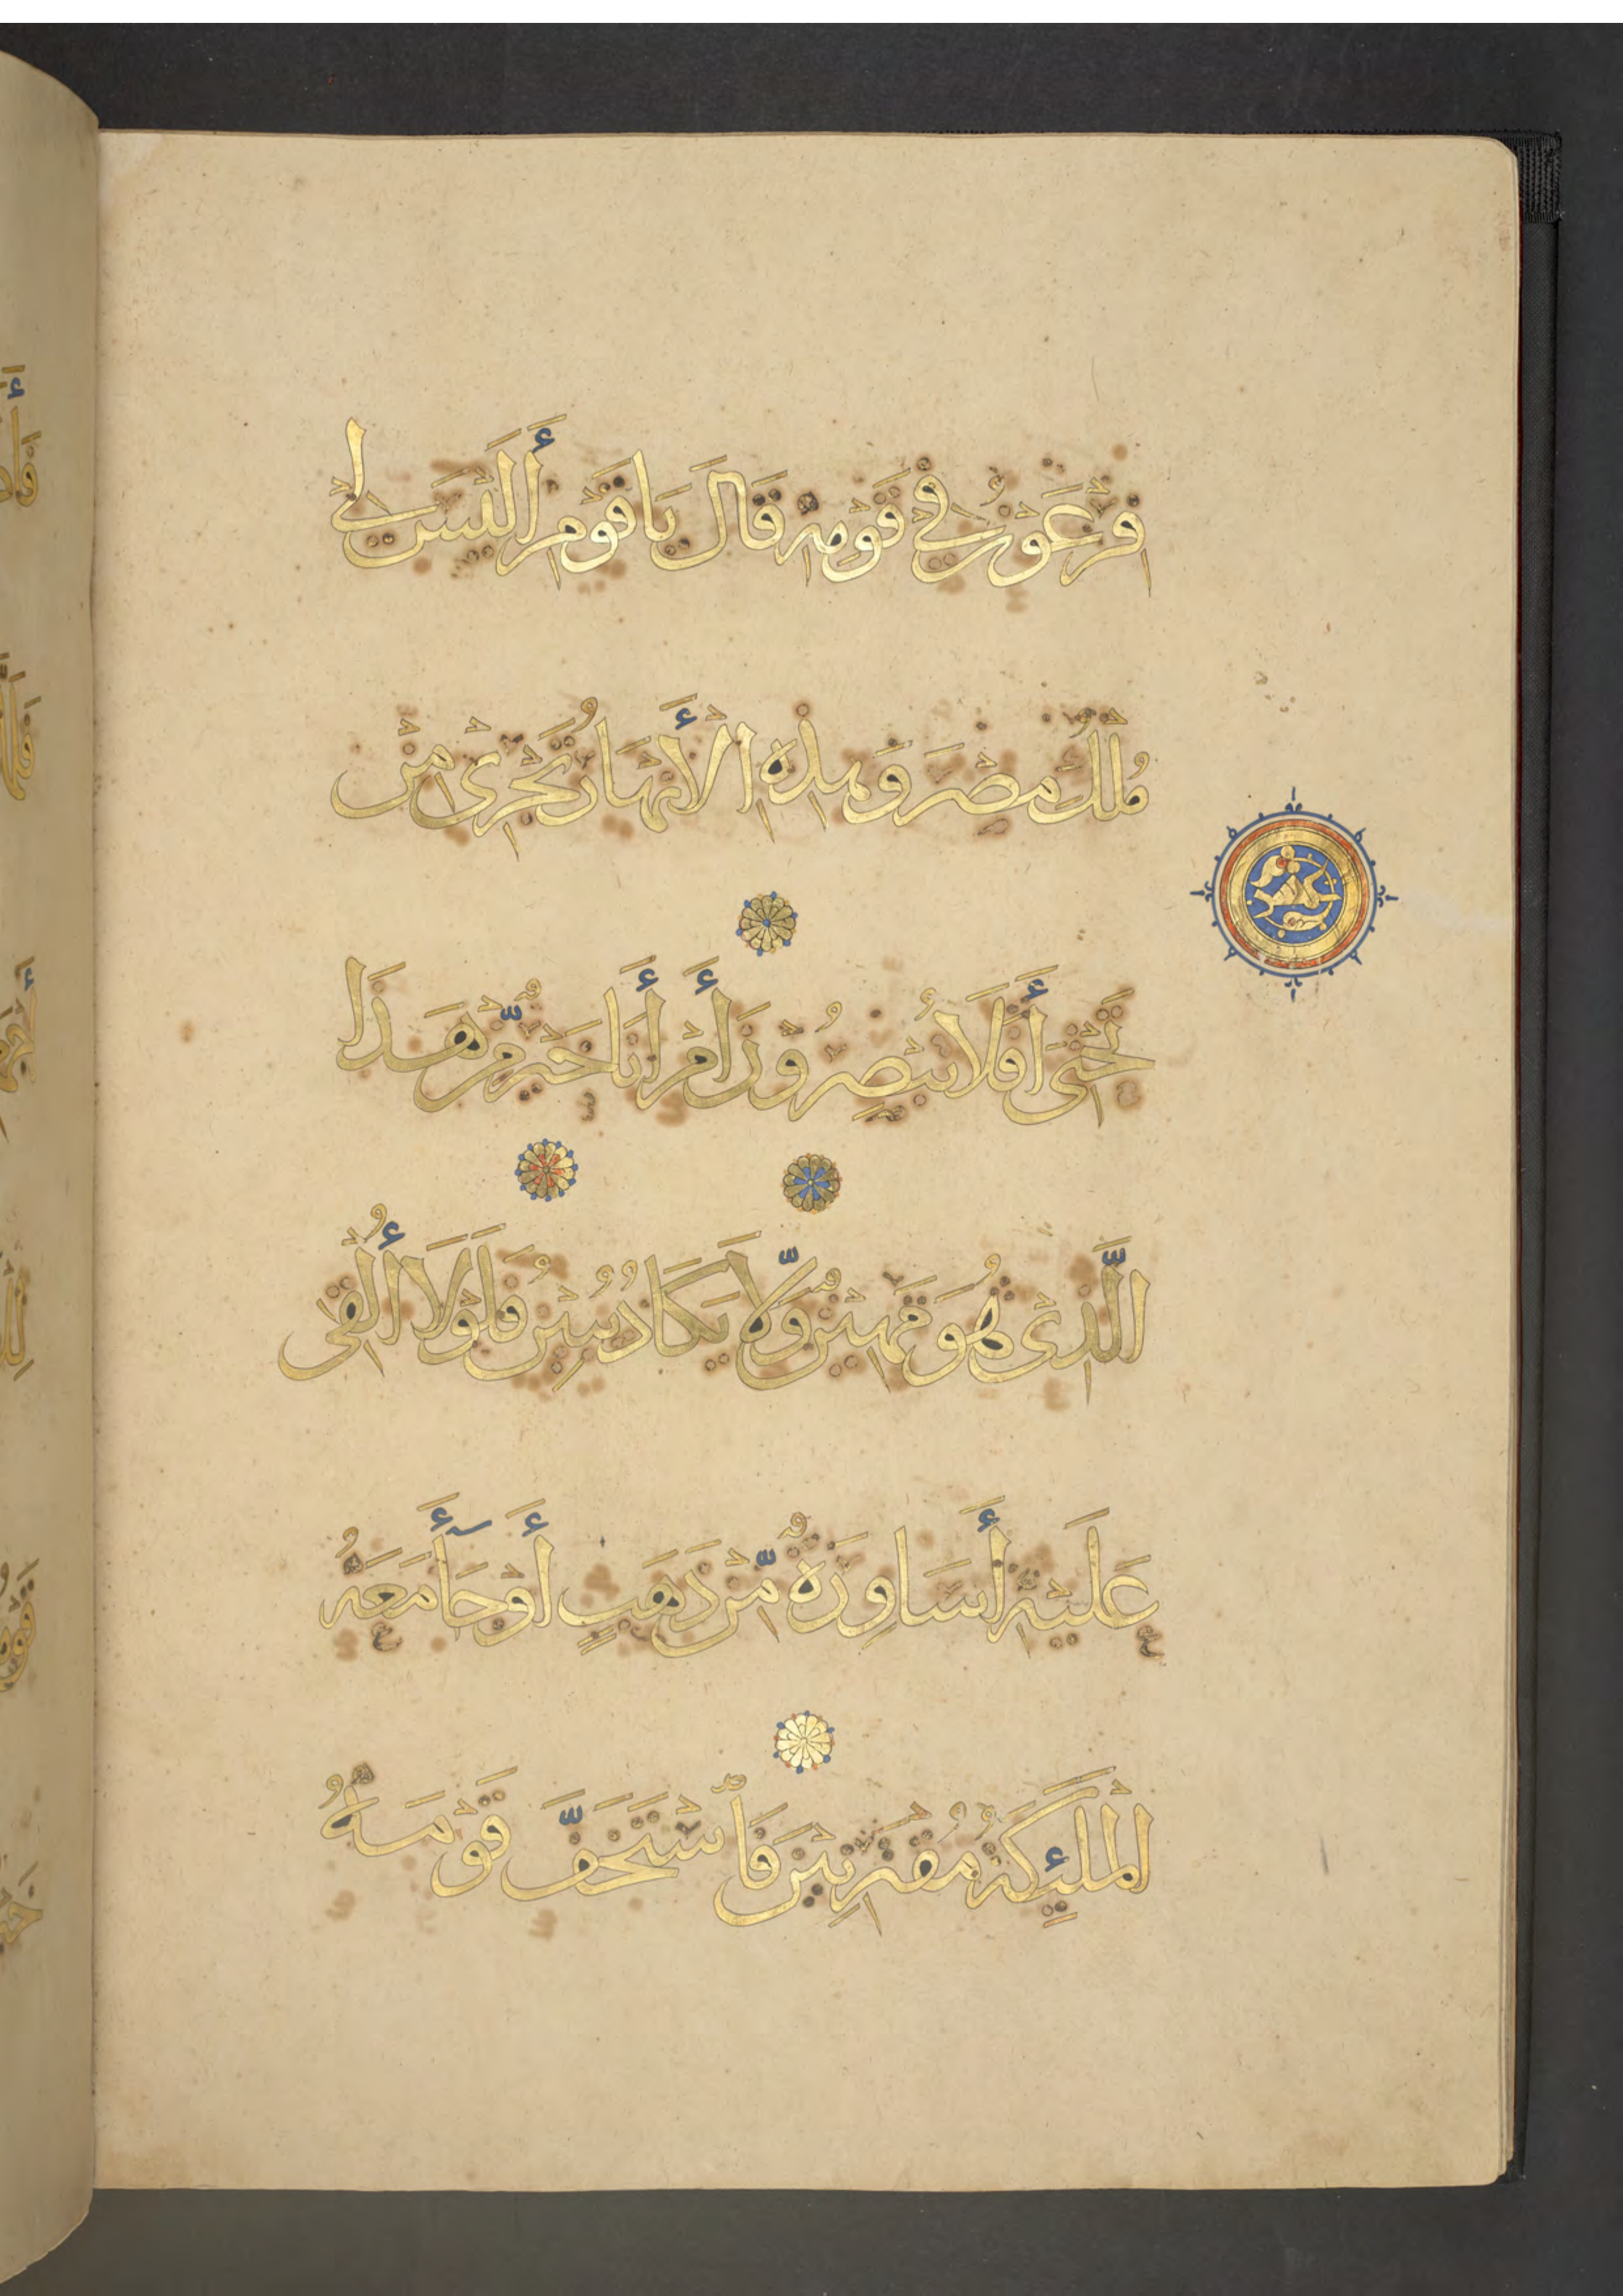 فِرْعَوْنُ فِي قَوْمِهِ قَالَ يَا قَوْمِ أَلَيْسَ لِي
مُلْكُ مِصْرَ وَهَذِهِ الْأَنْهَارُ تَجْرِي مِنْ
تَحْتِي أَفَلَا تُبْصِرُونَ أَمْ أَنَا خَيْرٌ مِّنْ هَذَا
الَّذِي هُوَ مَهِينٌ وَّلَا يَكَادُ يُبِينُ فَلَوْلَا أُلْقِيَ
عَلَيْهِ أَسَاوِرَةٌ مِّنْ ذَهَبٍ أَوْ جَآءَ مَعَهُ
الْمَلَئِكَةُ مُقْتَرِنِينَ فَاسْتَخَفَّ قَوْمَهُ